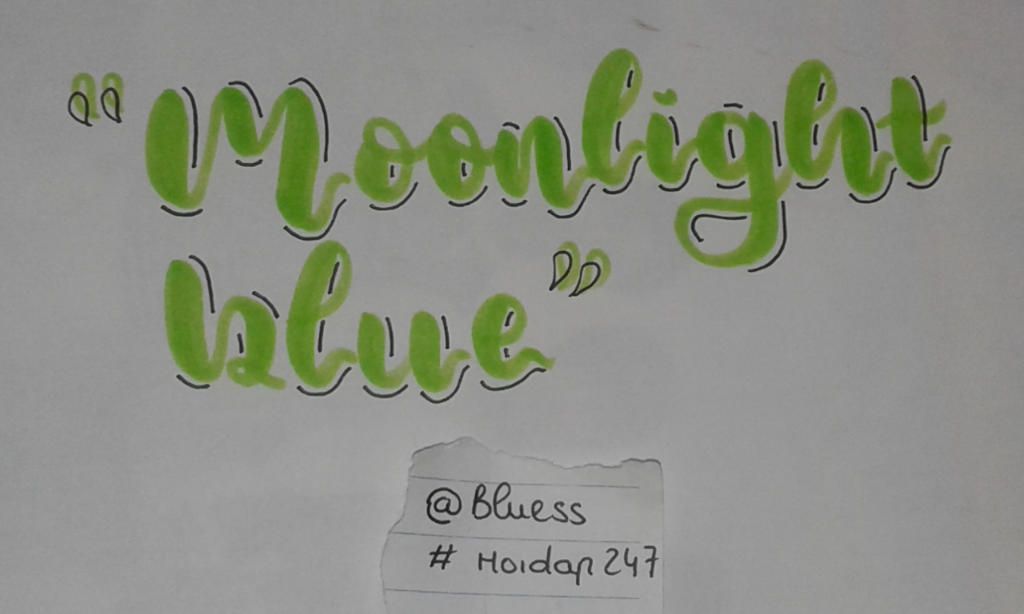 "Moonlight
blue"
@Bluess
# Hoidap247